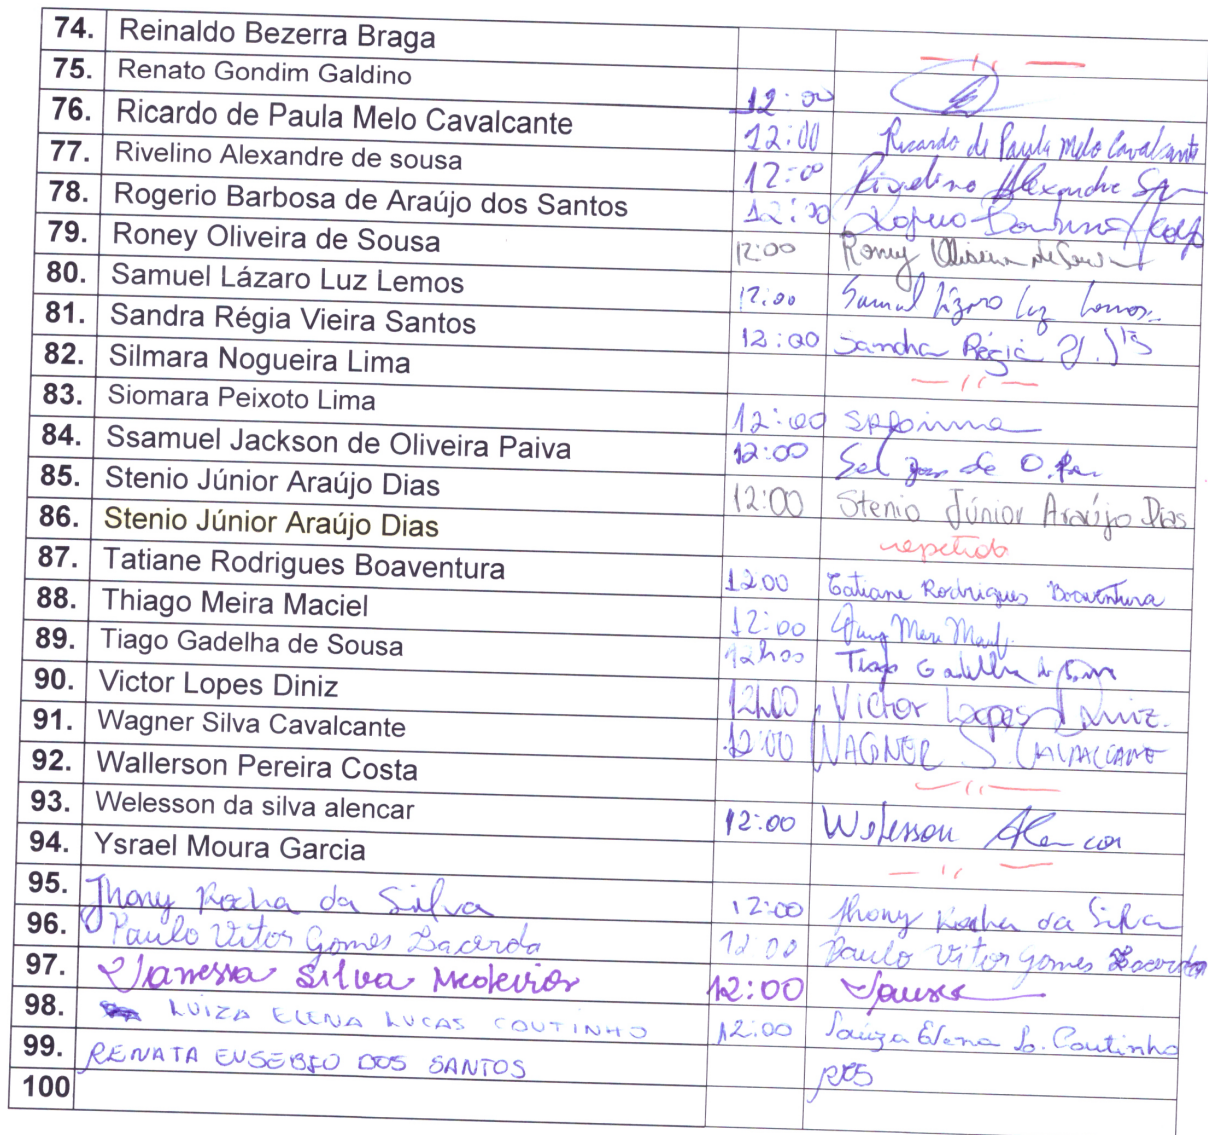 74. Reinaldo Bezerra Braga — 11 —
75. Renato Gondim Galdino 12:00
76. Ricardo de Paula Melo Cavalcante 12:00 Ricardo de Paula Melo Cavalcante
77. Rivelino Alexandre de sousa 12:00 Rivelino Alexandre
78. Rogerio Barbosa de Araújo dos Santos 12:00 Rogerio
79. Roney Oliveira de Sousa 12:00 Roney Oliveira de Sousa
80. Samuel Lázaro Luz Lemos 12:00 Samuel Lázaro Luz Lemos
81. Sandra Régia Vieira Santos 12:00 Sandra Régia V.
82. Silmara Nogueira Lima — 11 —
83. Siomara Peixoto Lima 12:00
84. Ssamuel Jackson de Oliveira Paiva 12:00 de O.
85. Stenio Júnior Araújo Dias 12:00 Stenio Júnior Araújo Dias
86. Stenio Júnior Araújo Dias repetido
87. Tatiane Rodrigues Boaventura 12:00 Tatiane Rodrigues Boaventura
88. Thiago Meira Maciel 12:00
89. Tiago Gadelha de Sousa 12h00 Tiago Gadelha de
90. Victor Lopes Diniz 12h00 Victor Lopes Diniz.
91. Wagner Silva Cavalcante 12:00 WAGNER S. CAVALCANTE
92. Wallerson Pereira Costa — 11 —
93. Welesson da silva alencar 12:00 Welesson Alencar
94. Ysrael Moura Garcia — 11 —
95. Jhony Rocha da Silva 12:00 Jhony Rocha da Silva
96. Paulo Vitor Gomes Lacerda 12:00 Paulo Vitor Gomes Lacerda
97. Vanessa Silva Medeiros 12:00
98. LUIZA ELENA LUCAS COUTINHO 12:00 Luiza Elena L. Coutinho
99. RENATA EUSEBIO DOS SANTOS RES
100